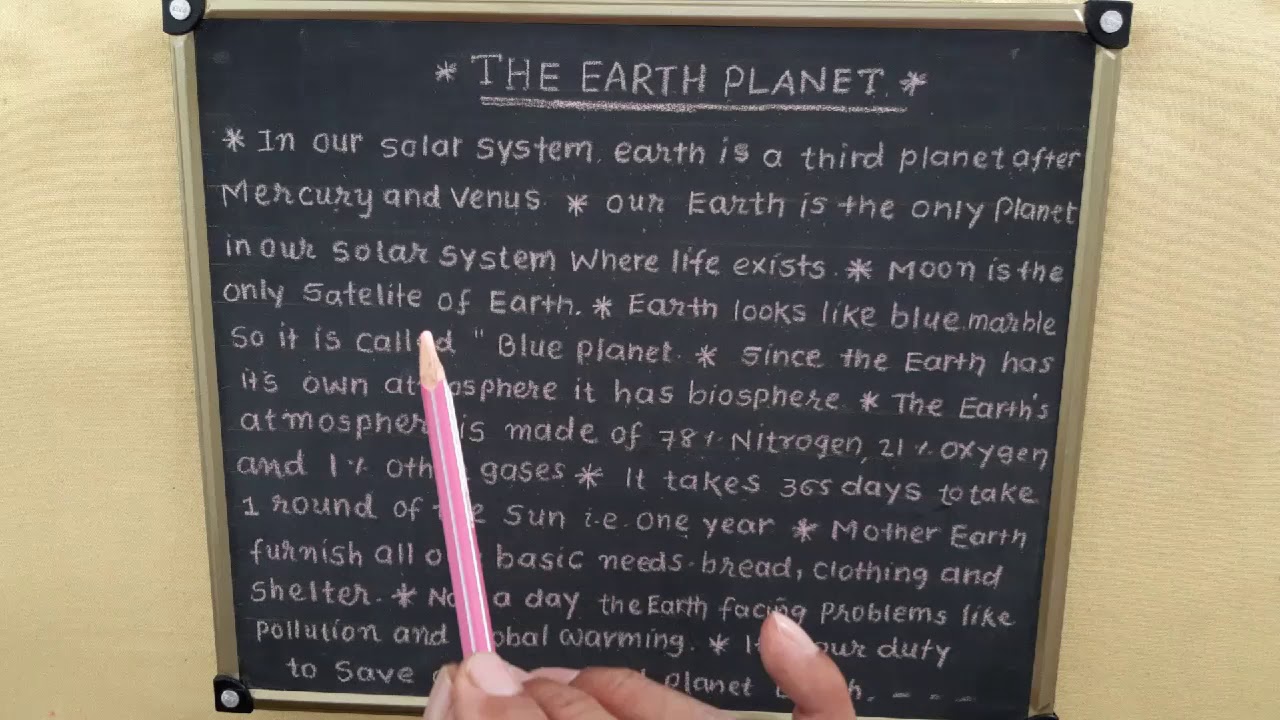 * THE EARTH PLANET *
* In our solar system, earth is a third planet after
Mercury and Venus * our Earth is the only Planet
in our solar system where life exists. * Moon is the
only Satelite of Earth. * Earth looks like blue marble
So it is called " Blue planet. * Since the Earth has
it's own atmosphere it has biosphere * The Earth's
atmosphere is made of 78% Nitrogen, 21% oxygen
and 1% other gases * It takes 365 days to take
1 round of the Sun i.e. one year * Mother Earth
furnish all our basic needs. bread, clothing and
Shelter. * a day the Earth facing Problems like
pollution and global warming. * our duty
to Save Planet - - -